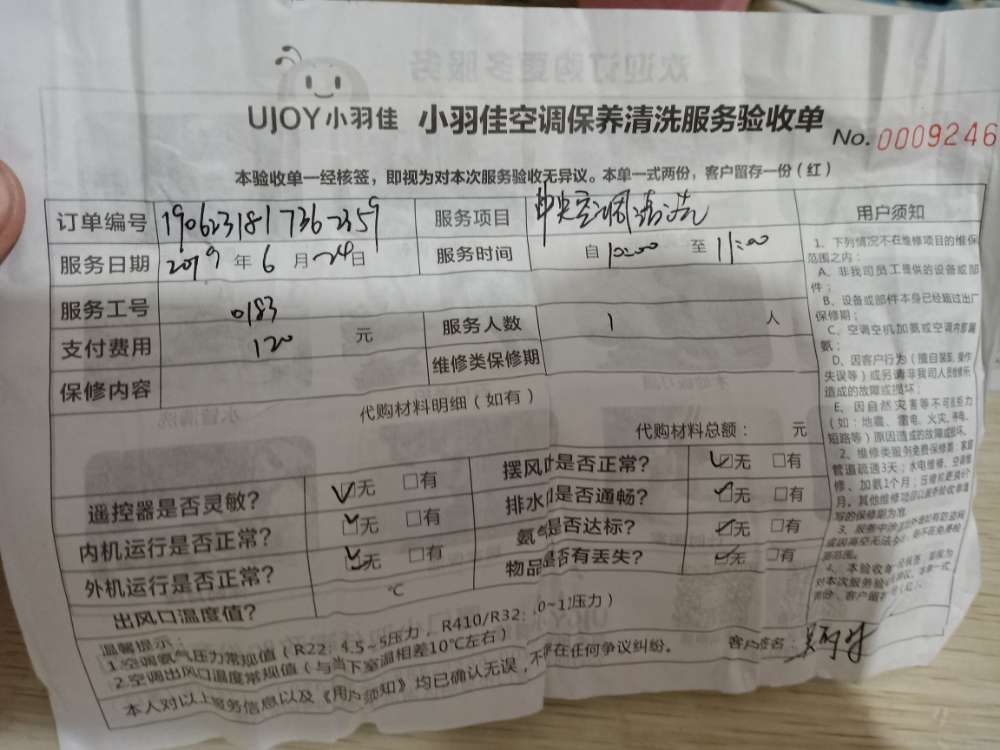 UJOY小羽佳 小羽佳空调保养清洗服务验收单 No. 0009246
本验收单一经核签，即视为对本次服务验收无异议。本单一式两份，客户留存一份（红）
订单编号 1906231817362359 服务项目 中央空调清洗
服务日期 2019 年 6 月 24 日 服务时间 自 10:00 至 11:00
服务工号 0183 服务人数 1 人
支付费用 120 元 维修类保修期
保修内容
代购材料明细（如有）
代购材料总额： 元
遥控器是否灵敏？ ☑无 □有 摆风 是否正常？ ☑无 □有
内机运行是否正常？ ☑无 □有 排水 是否通畅？ ☑无 □有
外机运行是否正常？ ☑无 □有 氨气是否达标？ ☑无 □有
物品是否有丢失？ ☑无 □有
出风口温度值？ ℃
温馨提示：
1.空调氨气压力常规值（R22：4.5~5压力，R410/R32： 压力）
2.空调出风口温度常规值（与当下室温相差10℃左右）
本人对以上服务信息以及《用户须知》均已确认无误，不存在任何争议纠纷。 客户签名：
用户须知
1、下列情况不在维修项目的维保
范围之内：
A、非我司员工提供的设备或部
件；
B、设备或部件本身已经超过出厂
保修期；
C、空调空机加氨或空调内部漏
氨；
D、因客户行为（擅自装拆、操作
失误等）或另请非我司人员维修所
造成的故障或损坏；
E、因自然灾害等不可抵抗力
（如：地震、雷电、火灾、停电、
短路等）原因造成的故障或损坏。
2、维修类服务免费保修期：家庭
管道疏通3天；水电维修、空调维
修、加氨1个月；压缩机更换6个
月。其他维修项目以服务验收单填
写的保修期为准。